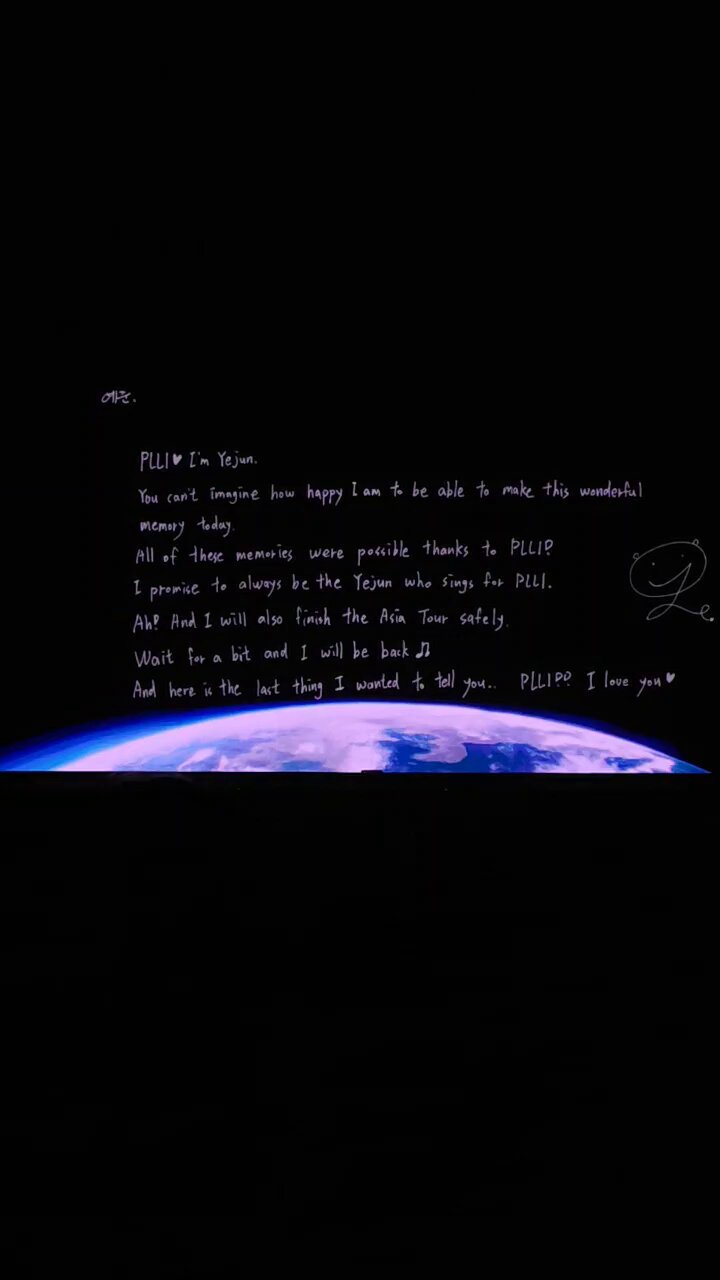 예준.
PLLI♥ I'm Yejun.
You can't imagine how happy I am to be able to make this wonderful
memory today.
All of these memories were possible thanks to PLLI!
I promise to always be the Yejun who sings for PLLI.
Ah! And I will also finish the Asia Tour safely.
Wait for a bit and I will be back ♫
And here is the last thing I wanted to tell you.. PLLI!! I love you♥